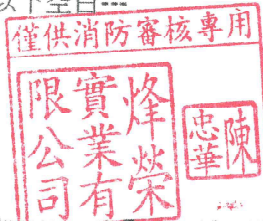 以下空白
僅供消防審核專用
烽榮
實業有
限公司
陳
忠華